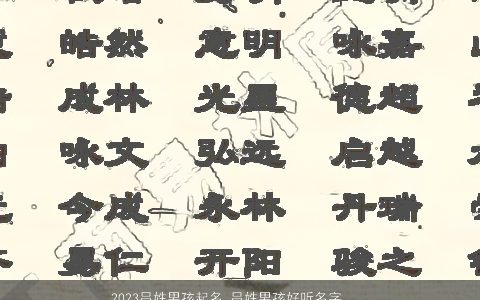 皓然 意明 咏嘉
成林 光晨 德超
咏文 弘远 启越
今成 永林 丹瑞
昊仁 开阳 骏之
2023吕姓男孩起名 吕姓男孩好听名字